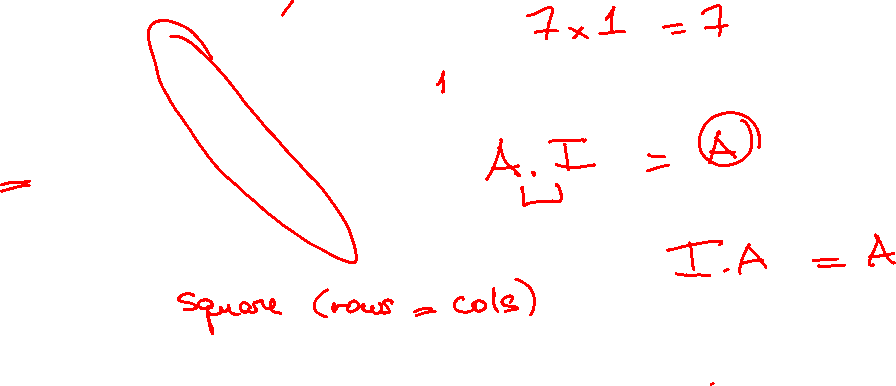 7 x 1 = 7
1
=
A . I = A
I . A = A
square (rows = cols)